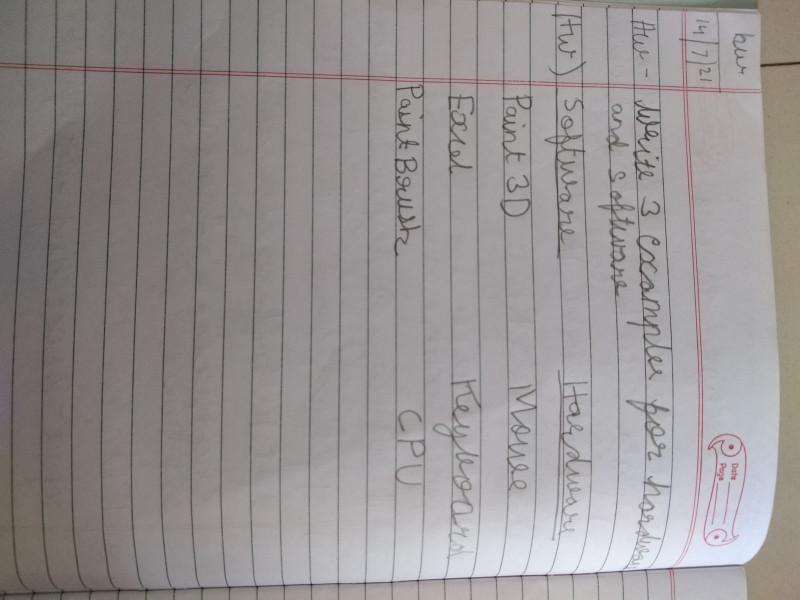 HW
14/7/21
Date
Page
HW - Write 3 examples for hardware
and software
HW) Software Hardware
Paint 3D Mouse
Excel Keyboard
Paint Brush CPU